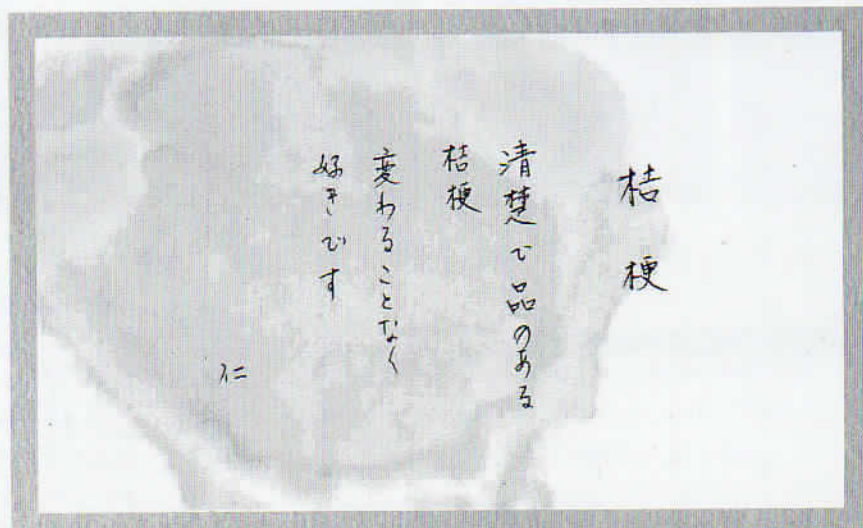 桔梗
清楚で品のある
桔梗
変わることなく
好きです
仁